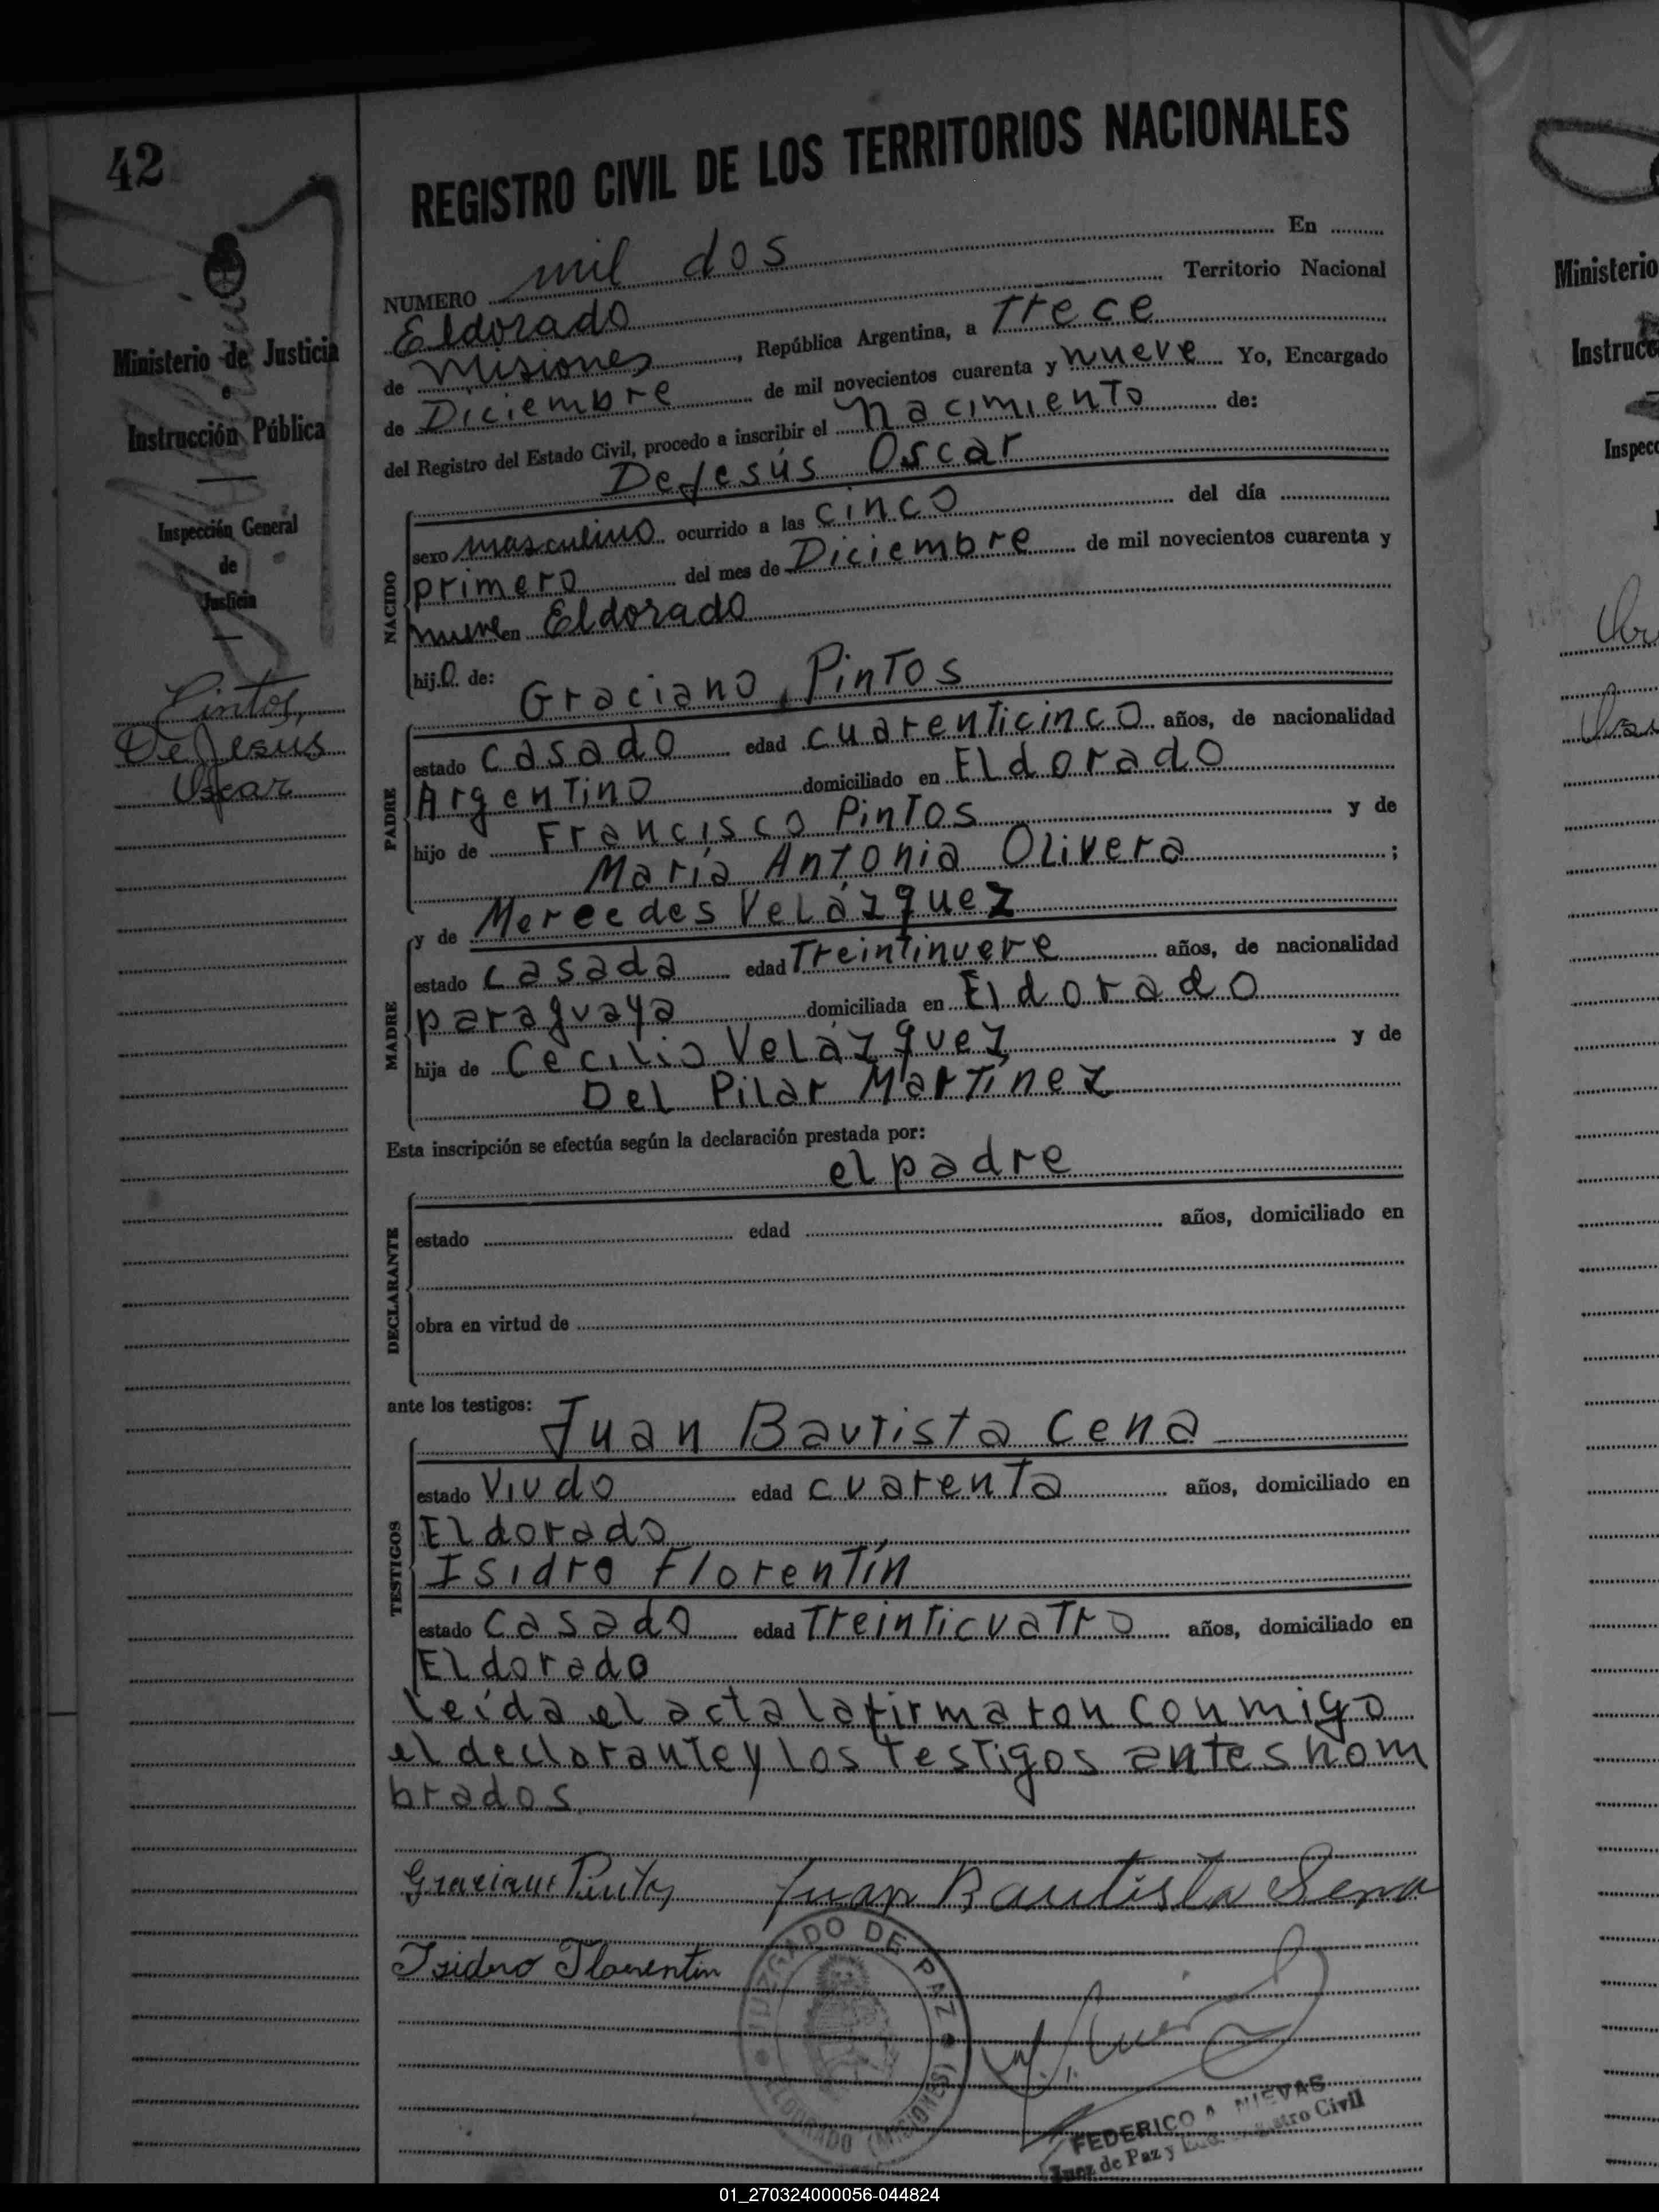 42
Ministerio de Justicia
e
Instrucción Pública
Inspección General
de
Justicia
Pintos,
De Jesús
Oscar
REGISTRO CIVIL DE LOS TERRITORIOS NACIONALES
NUMERO mil dos En
Eldorado Territorio Nacional
de Misiones, República Argentina, a Trece
de Diciembre de mil novecientos cuarenta y nueve Yo, Encargado
del Registro del Estado Civil, procedo a inscribir el nacimiento de:
De Jesús Oscar
NACIDO
sexo masculino ocurrido a las cinco del día
primero del mes de Diciembre de mil novecientos cuarenta y
nueve en Eldorado
hijo de:
Graciano Pintos
PADRE
estado casado edad cuarenticinco años, de nacionalidad
Argentino domiciliado en Eldorado
hijo de Francisco Pintos y de
María Antonia Olivera ;
y de Mercedes Velázquez
MADRE
estado casada edad Treintinueve años, de nacionalidad
paraguaya domiciliada en Eldorado
hija de Cecilio Velázquez y de
Del Pilar Martínez
Esta inscripción se efectúa según la declaración prestada por:
el padre
DECLARANTE
estado edad años, domiciliado en
obra en virtud de
ante los testigos:
Juan Bautista Cena
TESTIGOS
estado Viudo edad cuarenta años, domiciliado en
Eldorado
Isidro Florentín
estado casado edad Treinticuatro años, domiciliado en
Eldorado
leída el acta la firmaron conmigo
el declarante y los testigos antes nom
brados
Graciano Pintos Juan Bautista Sena
Isidro Florentin
JUZGADO DE PAZ
ELDORADO (MISIONES)
FEDERICO A. NIEVAS
Juez de Paz y Registro Civil
Ministerio
Instrucc
Inspecc
01_270324000056-044824